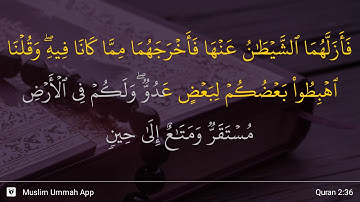 فَأَزَلَّهُمَا ٱلشَّيْطَـٰنُ عَنْهَا فَأَخْرَجَهُمَا مِمَّا كَانَا فِيهِ ۖ وَقُلْنَا
ٱهْبِطُوا۟ بَعْضُكُمْ لِبَعْضٍ عَدُوٌّ ۖ وَلَكُمْ فِى ٱلْأَرْضِ
مُسْتَقَرٌّ وَمَتَـٰعٌ إِلَىٰ حِينٍ
Muslim Ummah App
Quran 2:36